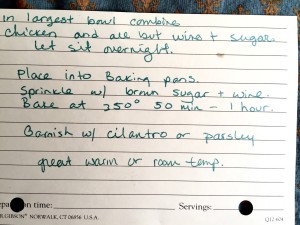 in largest bowl combine
chicken and all but wine + sugar.
Let sit overnight.
Place into Baking pans.
Sprinkle w/ brown sugar + wine.
Bake at 350° 50 min - 1 hour.
Garnish w/ cilantro or parsley
great warm or room temp.
time: Serving:
GIBSON® NORWALK, CT 06856 U.S.A.